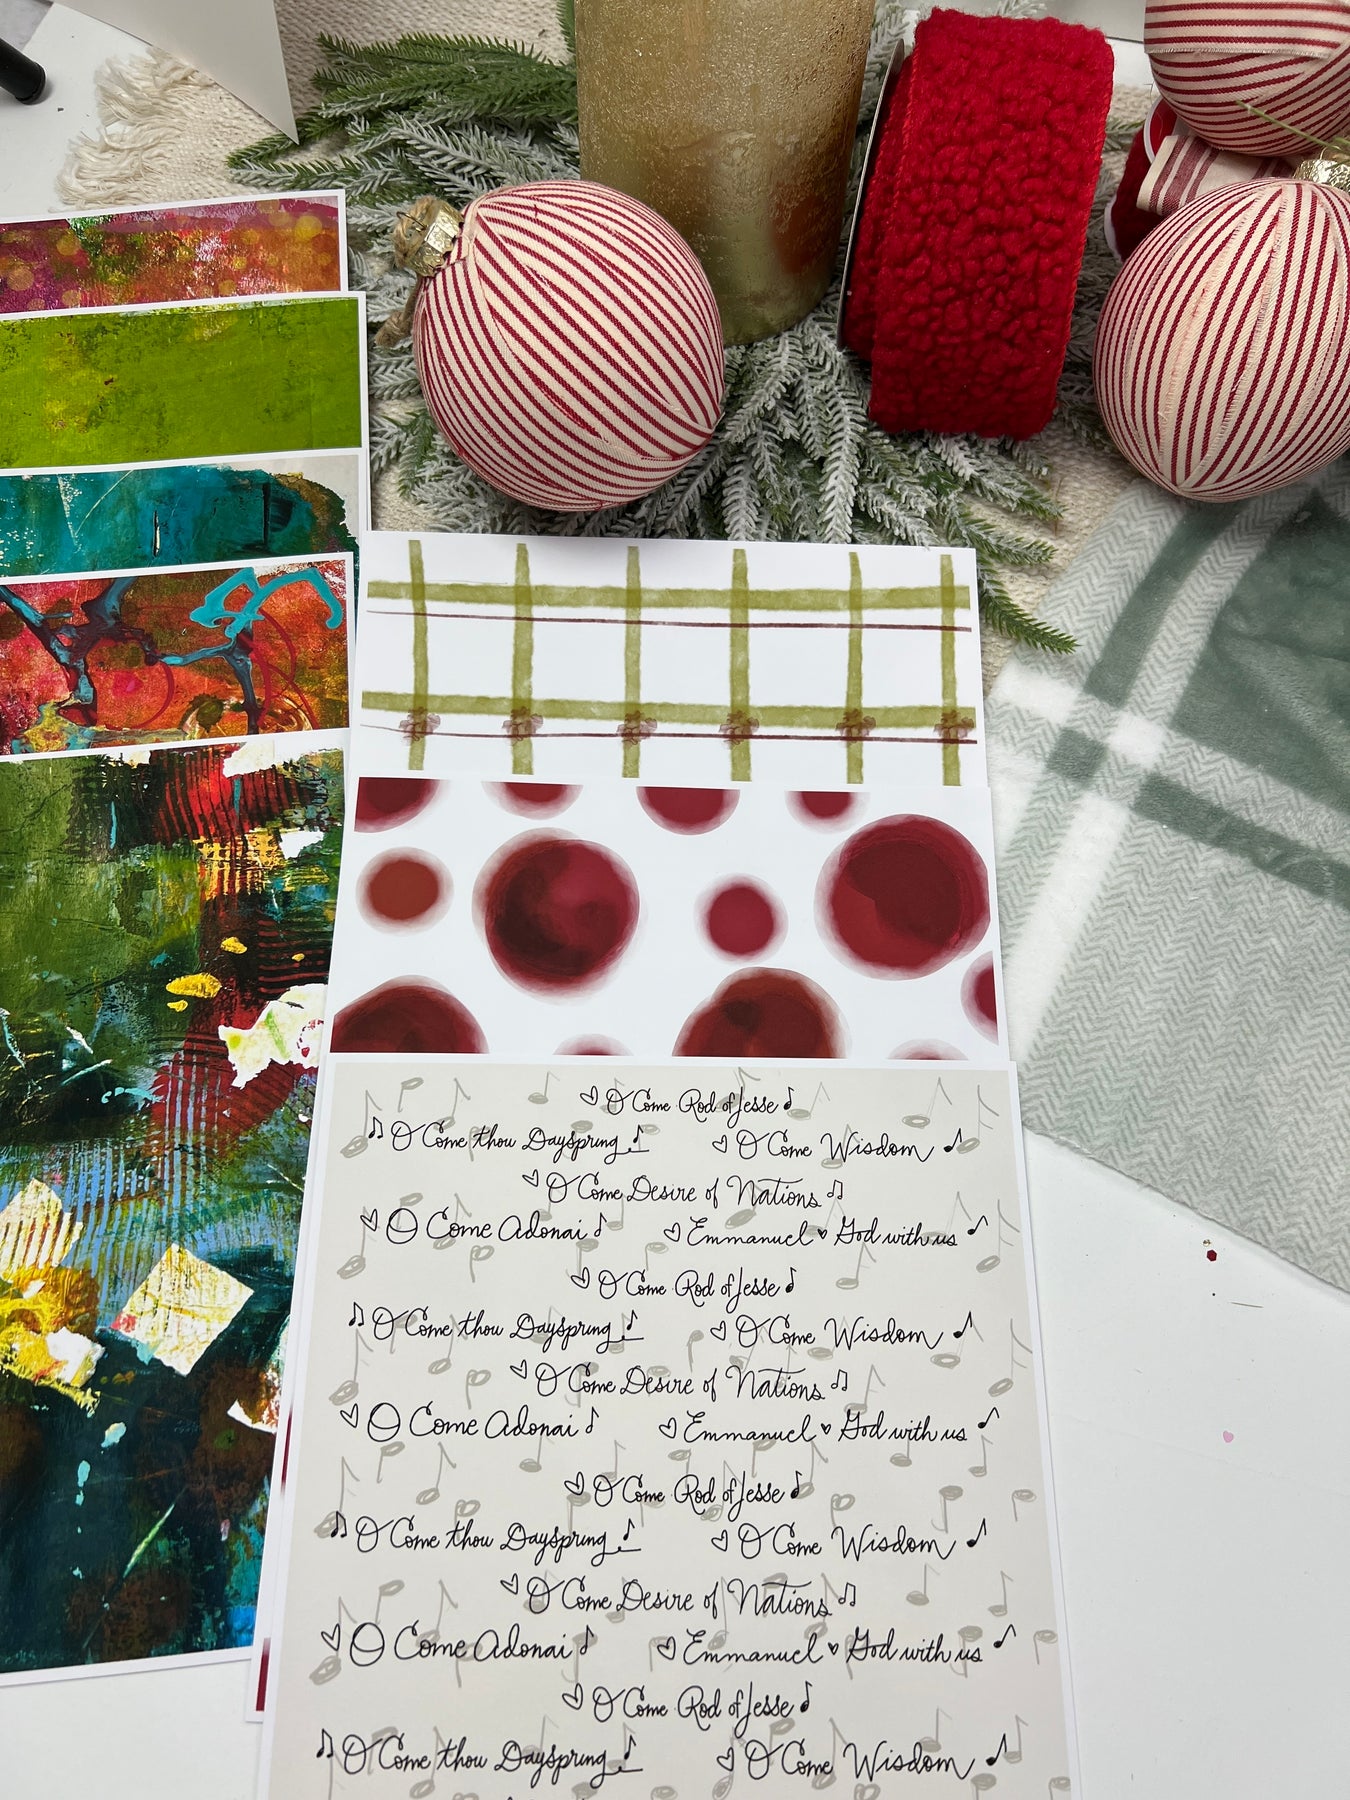 O Come Rod of Jesse
O Come thou Dayspring O Come Wisdom
O Come Desire of Nations
O Come Adonai Emmanuel God with us
O Come Rod of Jesse
O Come thou Dayspring O Come Wisdom
O Come Desire of Nations
O Come Adonai Emmanuel God with us
O Come Rod of Jesse
O Come thou Dayspring O Come Wisdom
O Come Desire of Nations
O Come Adonai Emmanuel God with us
O Come Rod of Jesse
O Come thou Dayspring O Come Wisdom